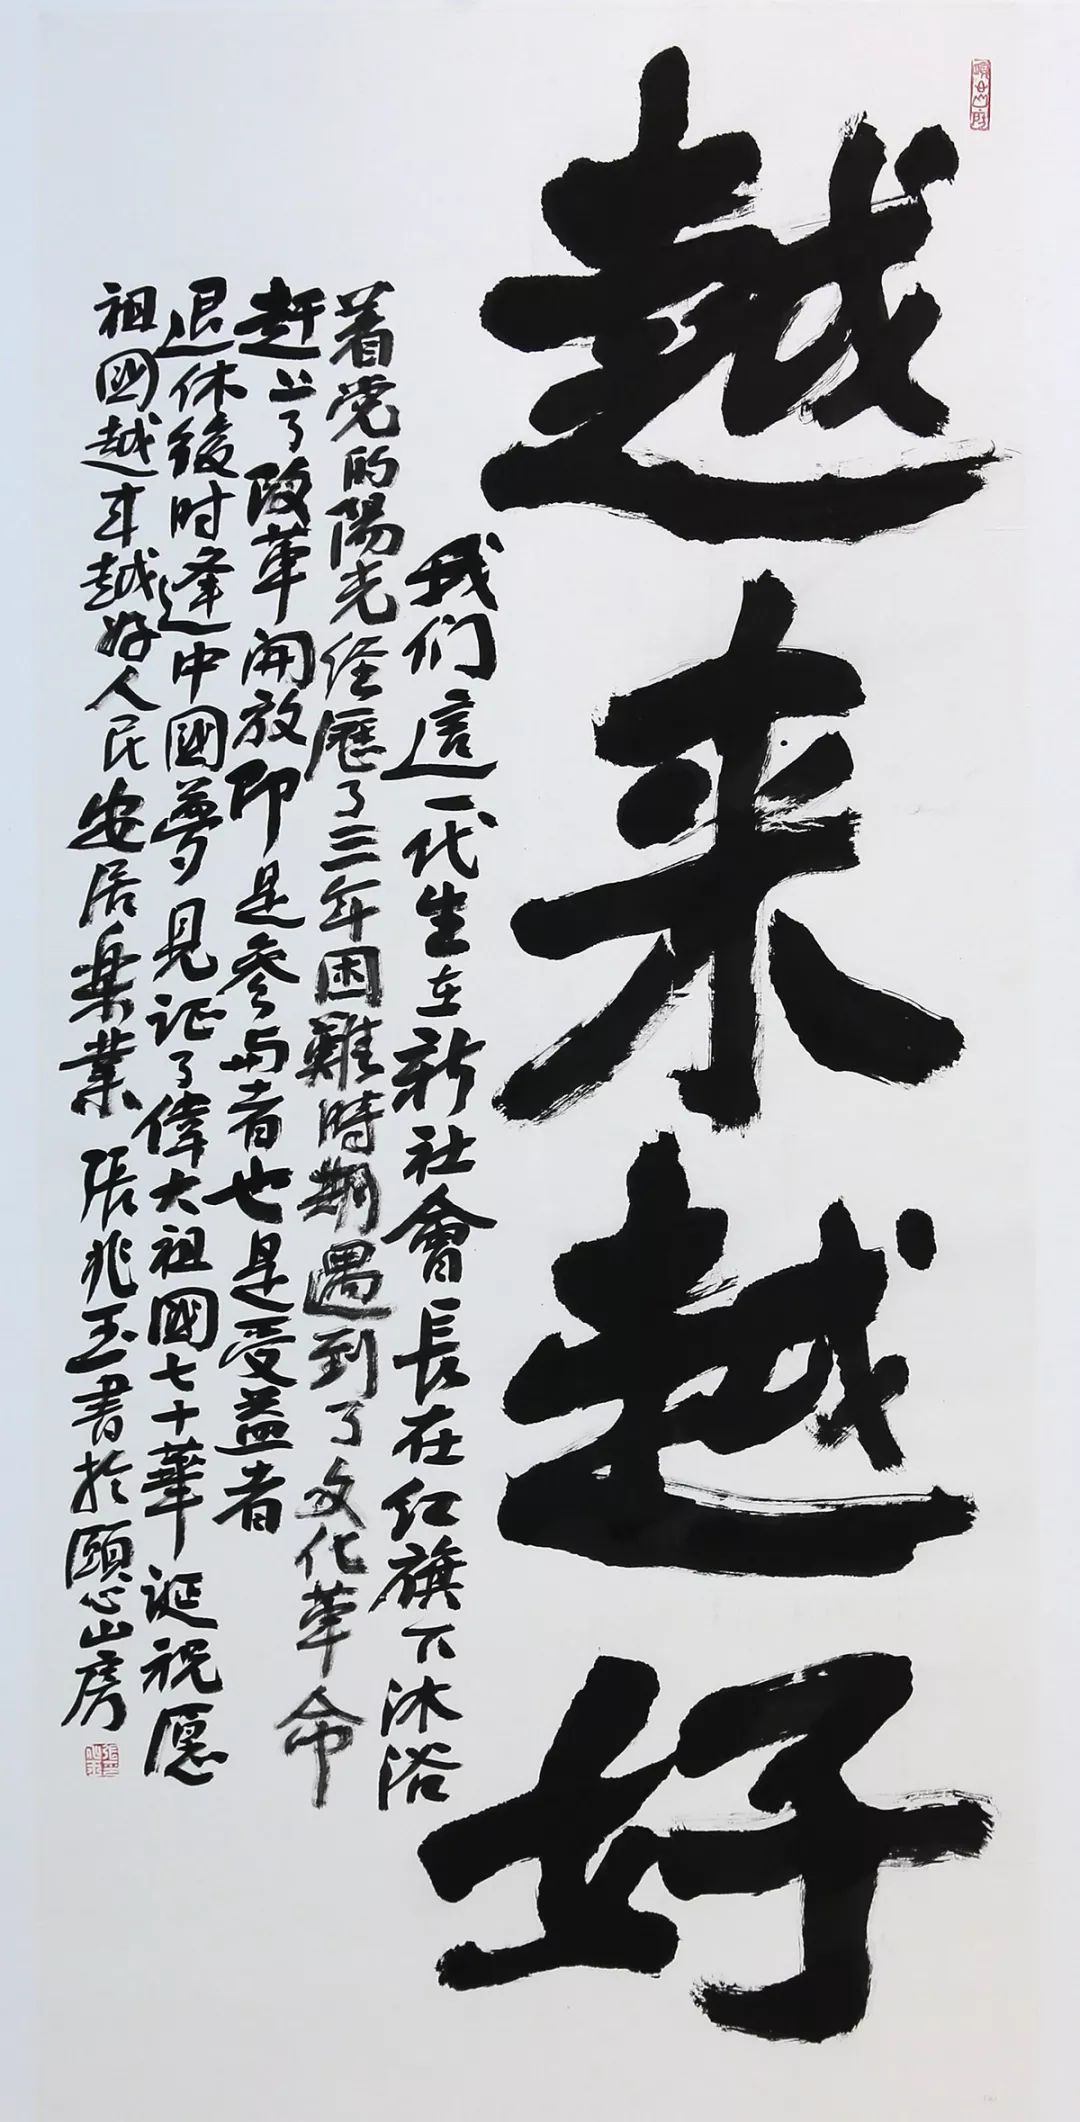 越来越好
我们這一代生在新社會長在红旗下沐浴
着党的陽光经歷了三年困難時期遇到了文化革命
赶上了改革開放即是參与者也是受益者
退休後时逢中國夢见证了偉大祖國七十華诞祝愿
祖國越来越好人民安居樂業 張兆玉書於頤心山房